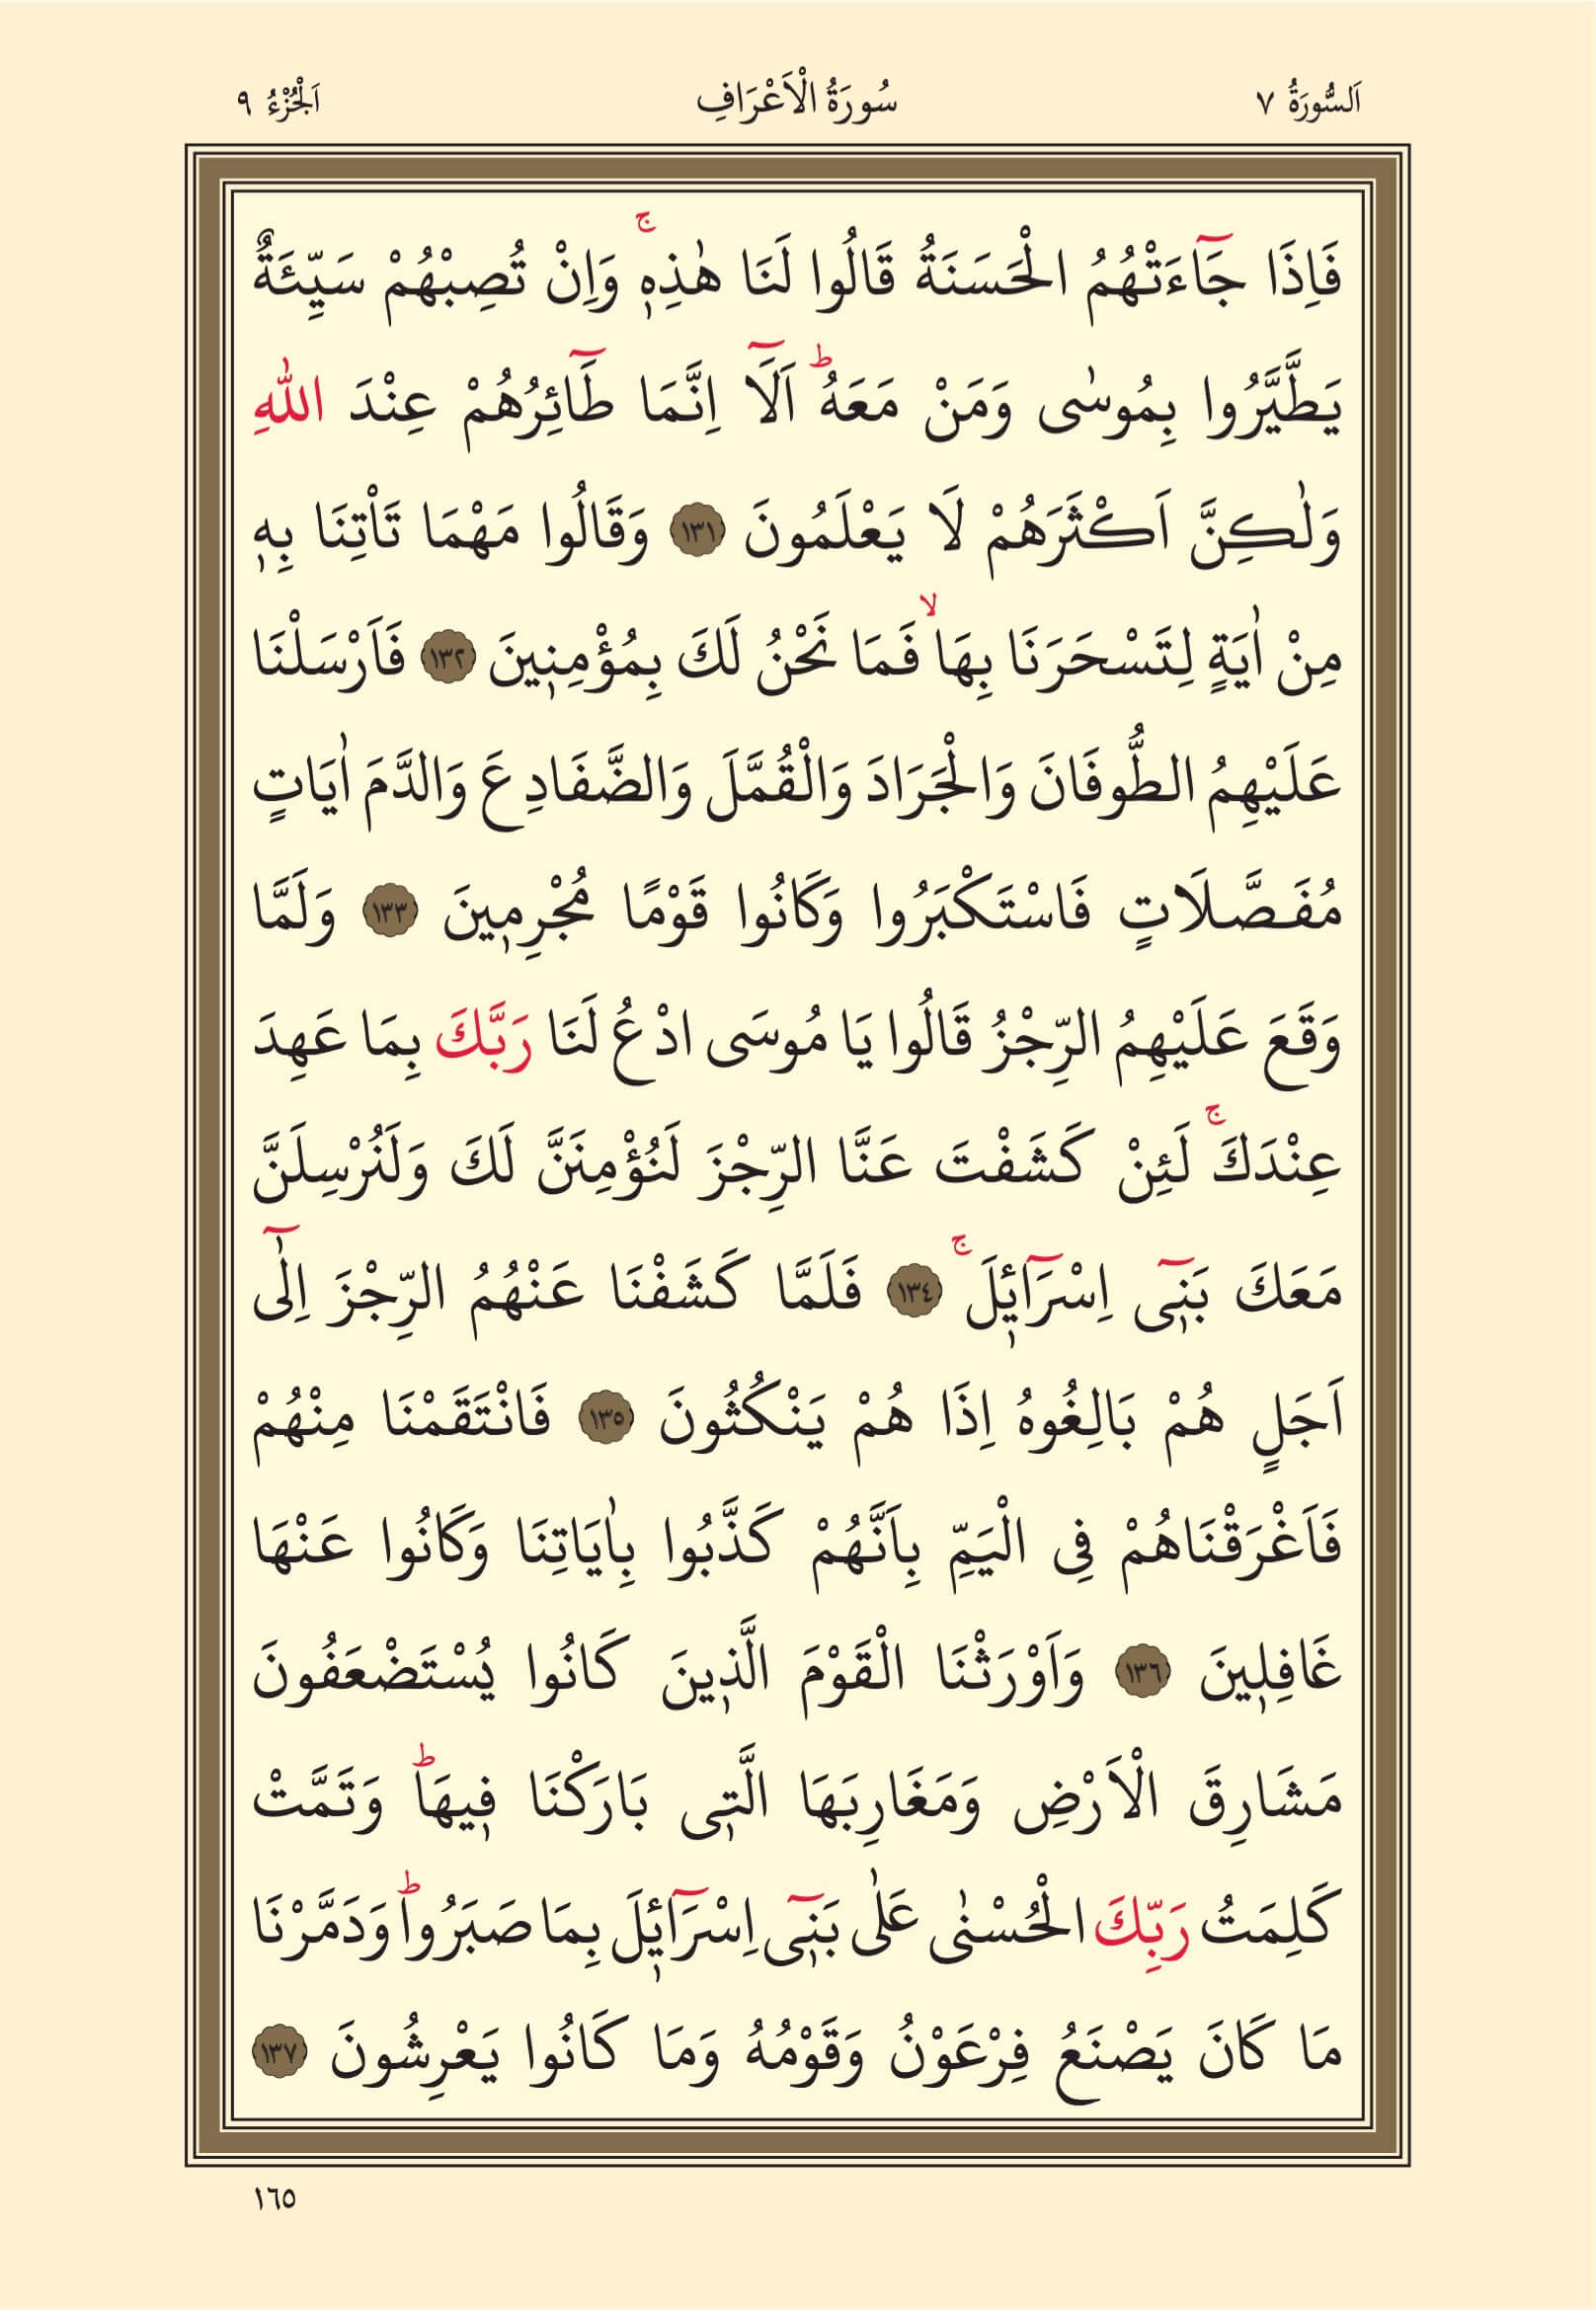 اَلسُّورَةُ ٧ سُورَةُ الْاَعْرَافِ اَلْجُزْءُ ٩
فَاِذَا جَٓاءَتْهُمُ الْحَسَنَةُ قَالُوا لَنَا هٰذِه۪ۚ وَاِنْ تُصِبْهُمْ سَيِّئَةٌ
يَطَّيَّرُوا بِمُوسٰى وَمَنْ مَعَهُۜ اَلَٓا اِنَّمَا طَٓائِرُهُمْ عِنْدَ اللّٰهِ
وَلٰكِنَّ اَكْثَرَهُمْ لَا يَعْلَمُونَ ﴿١٣١﴾ وَقَالُوا مَهْمَا تَأْتِنَا بِه۪
مِنْ اٰيَةٍ لِتَسْحَرَنَا بِهَاۙ فَمَا نَحْنُ لَكَ بِمُؤْمِن۪ينَ ﴿١٣٢﴾ فَاَرْسَلْنَا
عَلَيْهِمُ الطُّوفَانَ وَالْجَرَادَ وَالْقُمَّلَ وَالضَّفَادِعَ وَالدَّمَ اٰيَاتٍ
مُفَصَّلَاتٍ فَاسْتَكْبَرُوا وَكَانُوا قَوْمًا مُجْرِم۪ينَ ﴿١٣٣﴾ وَلَمَّا
وَقَعَ عَلَيْهِمُ الرِّجْزُ قَالُوا يَا مُوسَى ادْعُ لَنَا رَبَّكَ بِمَا عَهِدَ
عِنْدَكَۚ لَئِنْ كَشَفْتَ عَنَّا الرِّجْزَ لَنُؤْمِنَنَّ لَكَ وَلَنُرْسِلَنَّ
مَعَكَ بَن۪ٓى اِسْرَٓائ۪لَۚ ﴿١٣٤﴾ فَلَمَّا كَشَفْنَا عَنْهُمُ الرِّجْزَ اِلٰٓى
اَجَلٍ هُمْ بَالِغُوهُ اِذَا هُمْ يَنْكُثُونَ ﴿١٣٥﴾ فَانْتَقَمْنَا مِنْهُمْ
فَاَغْرَقْنَاهُمْ فِى الْيَمِّ بِاَنَّهُمْ كَذَّبُوا بِاٰيَاتِنَا وَكَانُوا عَنْهَا
غَافِل۪ينَ ﴿١٣٦﴾ وَاَوْرَثْنَا الْقَوْمَ الَّذ۪ينَ كَانُوا يُسْتَضْعَفُونَ
مَشَارِقَ الْاَرْضِ وَمَغَارِبَهَا الَّت۪ى بَارَكْنَا ف۪يهَاۜ وَتَمَّتْ
كَلِمَتُ رَبِّكَ الْحُسْنٰى عَلٰى بَن۪ٓى اِسْرَٓائ۪لَ بِمَا صَبَرُواۜ وَدَمَّرْنَا
مَا كَانَ يَصْنَعُ فِرْعَوْنُ وَقَوْمُهُ وَمَا كَانُوا يَعْرِشُونَ ﴿١٣٧﴾
١٦٥